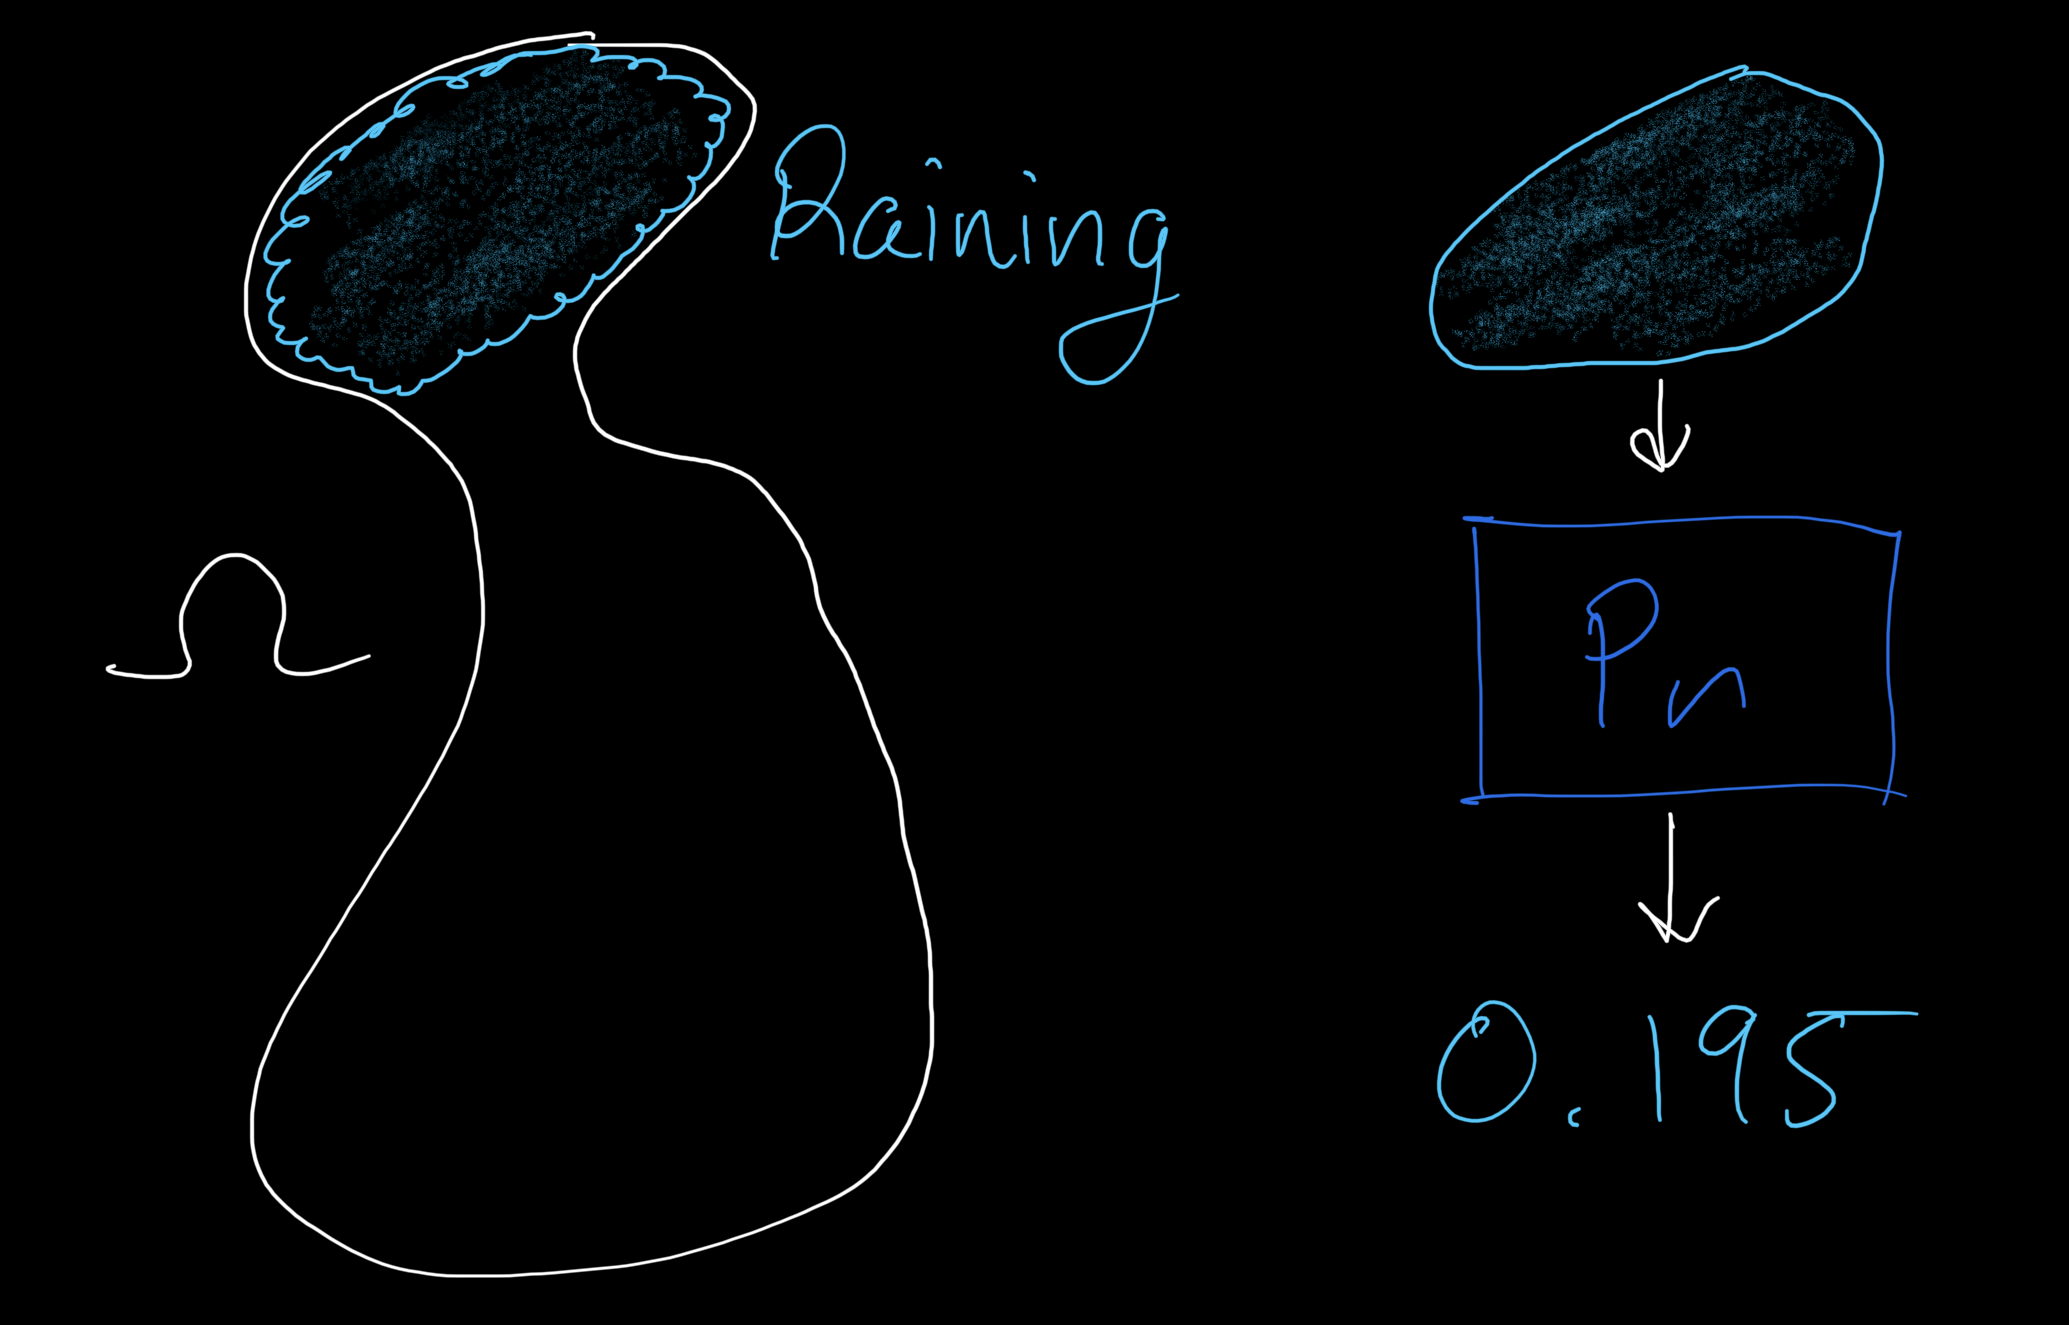 Raining
Ω
Pn
0.195